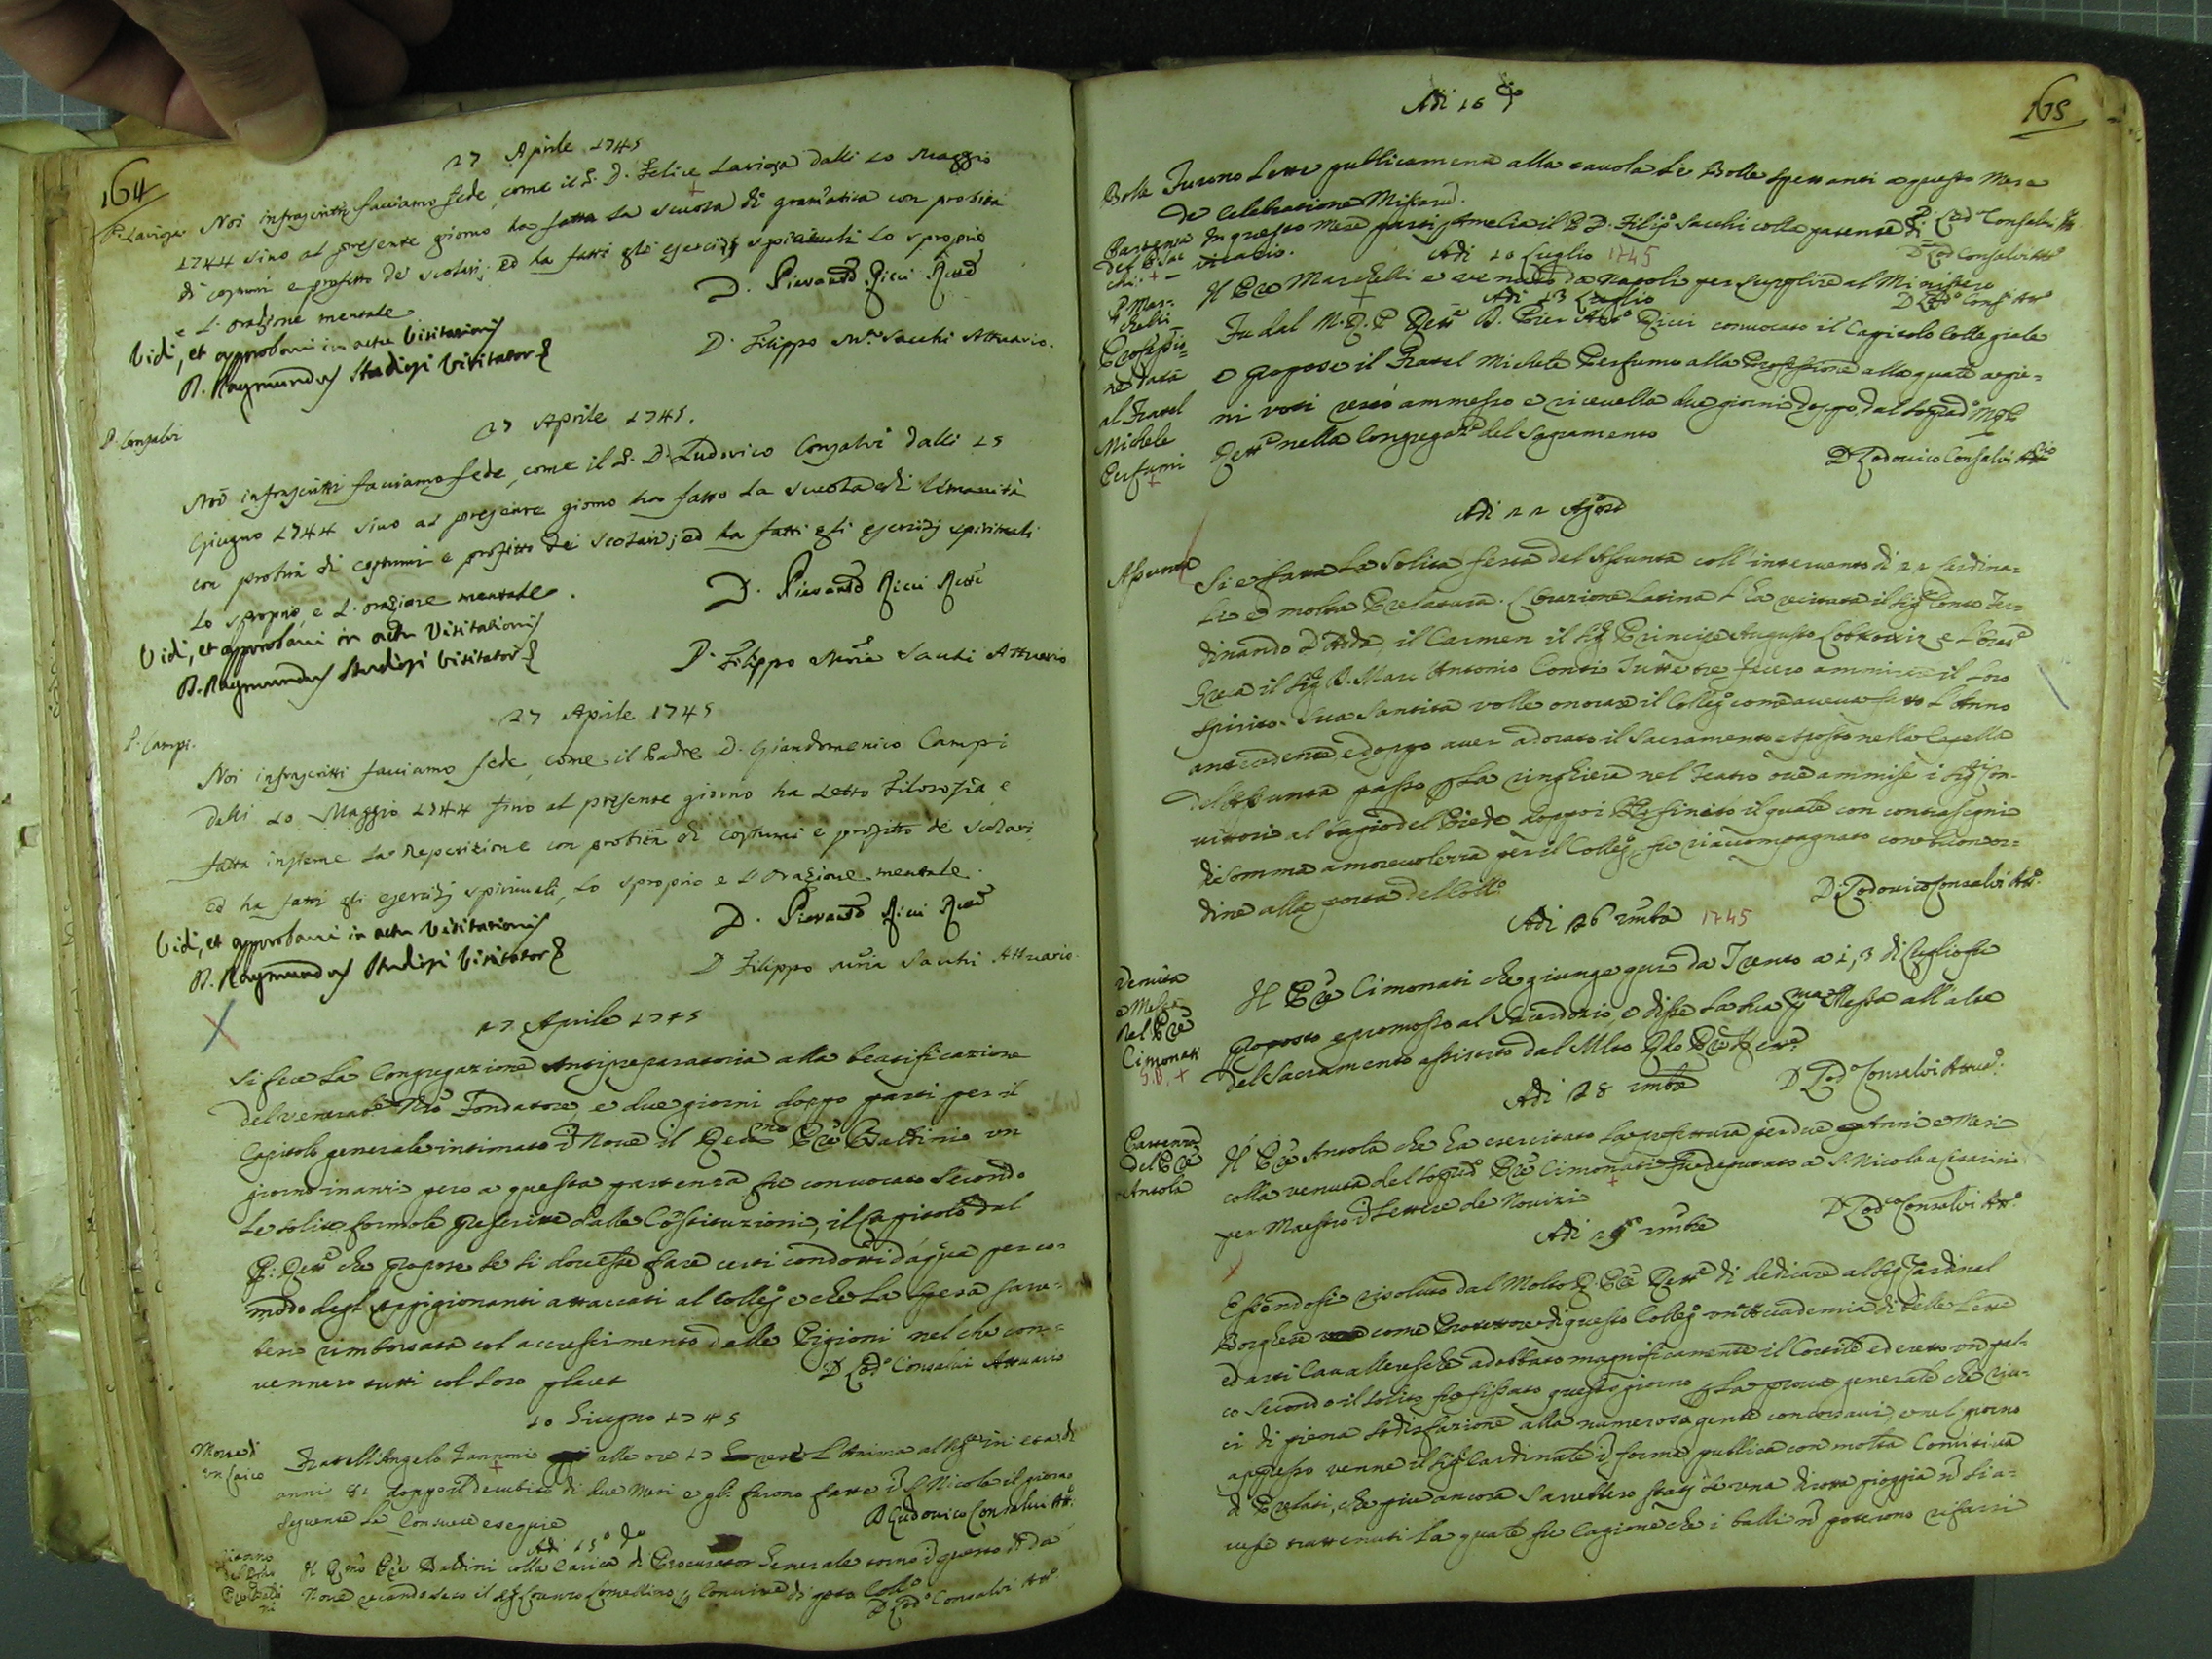 164
27 Aprile 1745
P. Laviosa
Noi infrascritti facciamo fede, come il P. D. Felice Laviosa dalli 10 Maggio
1744 sino al presente giorno ha fatta la scuola di gramatica con probità
di costumi e profitto de' scolari; ed ha fatti gli esercizj spirituali lo sproprio
e l'orazione mentale
D. Pierantº Ricci Rettº
Vidi, et approbavi in actu Visitationis
D. Raymundus Studiosi Visitator
D. Filippo Mª Sacchi Attuario.
P. Consalvi
27 Aprile 1745.
Noi infrascritti facciamo fede, come il P. D. Ludovico Consalvi dalli 15
Giugno 1744 sino al presente giorno ha fatto la scuola di Umanità
con probità di costumi e profitto dei scolari; ed ha fatti gli esercizj spirituali
lo sproprio, e l'orazione mentale.
D. Pierantº Ricci Rettº
Vidi, et approbavi in actu Visitationis
D. Raymundus Studiosi Visitator
D. Filippo Mria Sacchi Attuario
27 Aprile 1745
P. Campi.
Noi infrascritti facciamo fede, come il Padre D. Giandomenico Campi
dalli 10 Maggio 1744 fino al presente giorno ha letto Filosofia e
fatta insieme la Repetizione con probità di costumi e profitto de' scolari
ed ha fatti gli esercizj spirituali, lo sproprio e l'Orazione mentale.
D. Pierantº Ricci Rettº
Vidi, et approbavi in actu Visitationis
D. Raymundus Studiosi Visitator
D Filippo Mria Sacchi Attuario.
27 Aprile 1745
Si fece la Congregazione Antipreparatoria alla beatificazione
del venerabe Nro Fondatore, e due giorni doppo partì per il
Capitolo generale intimato Nove il Revmo Pre Baldini un
giorno inanzi pero a questa partenza fu convocato secondo
le solite formole prescritte dalle Costituzioni, il Capitolo dal
P: Rettº che propose se si dovesse fare certi condotti d'aqua per co-
modo degl' appigionanti attaccati al Collegº e che la spesa sare-
bero rimborsata col accrescimento delle Pigioni nel che con-
vennero tutti col loro placet
D Lodº Consalvi Attuario
10 Giugno 1745
Morte di
un Laico
Fratell'Angelo Zannoni alle ore 17 rese l'Anima al Sigre in eta di
anni 81 doppo il decubito di due Mesi e gli furono fatte S. Nicola il giorno
seguente le Consuete esequie
D Ludovico Consalvi Attº
Adi 15º dº
ritorno
del Rmo
Pre Baldi
ni
Il Revmo Pre Baldini colla Carica di Procurator Generale torno questo dì da
Nove recando seco il Sig Lorenzo Comellino Convive di qto Collº
D Lodº Consalvi Attº
165
Adi 16
Bolle
Furono lette publicamente alla tavola le Bolle spettanti a questo Mese
de celebratione Missarū.
P. Lod Consalvi Att
Partenza
del P Sac
chi +
In questo Mese partì Amelia il P D. Filipº Sacchi colla patente di
vicario.
D Lod Consalvi Attº
Adi 10 Luglio 1745
P Mar=
chelli
Il Pre Marchelli e venuto da Napoli per supplire al Ministero
D Lodº Consi Attº
Adi 13 Luglio
Professio=
ne data
al Fratel
Michele
Perfumi
Fu dal M. R. P Rettº D. Pier Antº Ricci convocato il Capitolo Collegiale
e propose il Fratel Michele Perfumo alla Professione alla quale a pie=
ni voti restò ammesso e ricevella due giorni doppo dal sopradº MRP
Rettº nella Congregazº del Sagramento
D Lodovico Consalvi Attrio
Adi 22 Agosto
Assunta
Si e fatta la solita festa del Assunta coll'intervento di 22 Cardina=
li e molta Prelatura. L'Orazione Latina l'ha recitata il Sig Conte Fer=
dinando D'Adda, il Carmen il Sig Principe Augusto Lobkoviz e l'Orazº
Greca il Sig D. Marc Antonio Conti Tutte tre fecero ammirare il loro
spirito. Sua Santità volle onorare il Collegº come aveva fatto l'Anno
antecedente, e doppo aver adorato il Sacramento esposto nella Capella
dell'Assunta passo la ringhiera nel Teatro ove ammise i Sigi Con-
vittori al bagio del Piede doppoi finito il quale con contrasegni
di somma amorevolezza per il Collegº, fu riacompagnato con buon or=
dine alla porta del Collº
D. Lodovico Consalvi Attº.
Adi 26 1745
Venuta
e Messa
del Pre
Cimonati
S.B. +
Il Pre Cimonati che giunge qui da Trento a i 3 di Luglio fu
proposto e promosso al Sacerdozio, e disse la sua pma Messa all'alte
del Sacramento assistito dal Mlto Rdo Pre
D Lodº Consalvi Attuº.
Adi 28
Partenza
del Pre
Antola
Il Pre Antola che ha esercitato la prefettura per due Anni e Mesi
colla venuta del sopradº Pre Cimonati fu deputato a S. Nicola a Cesarini
per Maestro di Lettere de Novizi
D Lodco Consalvi Attº.
Adi 29
Essendosi risoluto dal Molto R. Pre Rettº di dedicare al Sig Cardinal
Borghese come Protettore di questo Collegº un'Accademia di belle Lettere
ed arti Cavalleresche adobbato magnificamente il Cortile ed eretto un pal-
co secondo il solito fu fissato questo giorno la prova generale che riu-
ci di piena sodisfazione alla numerosa gente concorsavi, e nel giorno
appresso venne il Sig Cardinale forma publica con molta Comitiva
di Prelati, che più ancora sarebbero stati se una dirotta pioggia n li a=
vesse trattenuti la quale fu Cagione che i balli n poterono riusciri